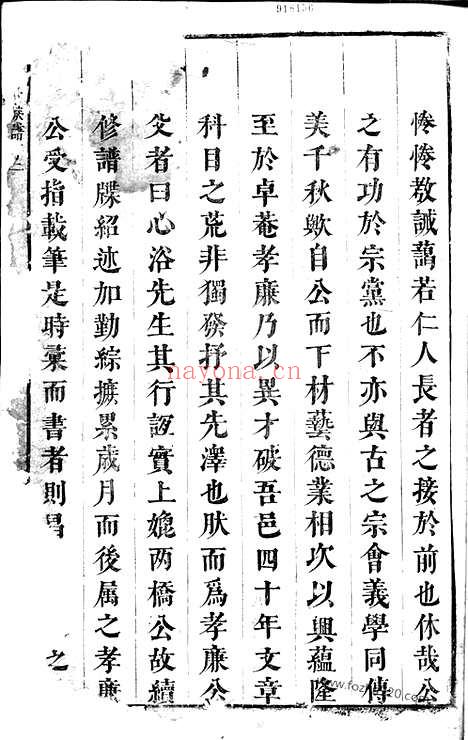 918136
惓惓教誡藹若仁人長者之接於前也休哉公
之有功於宗黨也不亦與古之宗會義學同傳
美千秋歟自公而下材藝德業相次以興蘊隆
至於卓菴孝廉乃以異才破吾邑四十年文章
科目之荒非獨發抒其先澤也肰而為孝廉公
父者曰心浴先生其行誼實上媲两橋公故續
修譜牒紹述加勤綜摭累歲月而後属之孝廉
公受指載筆是時彙而書者則昌
之
族譜
nayona.cn